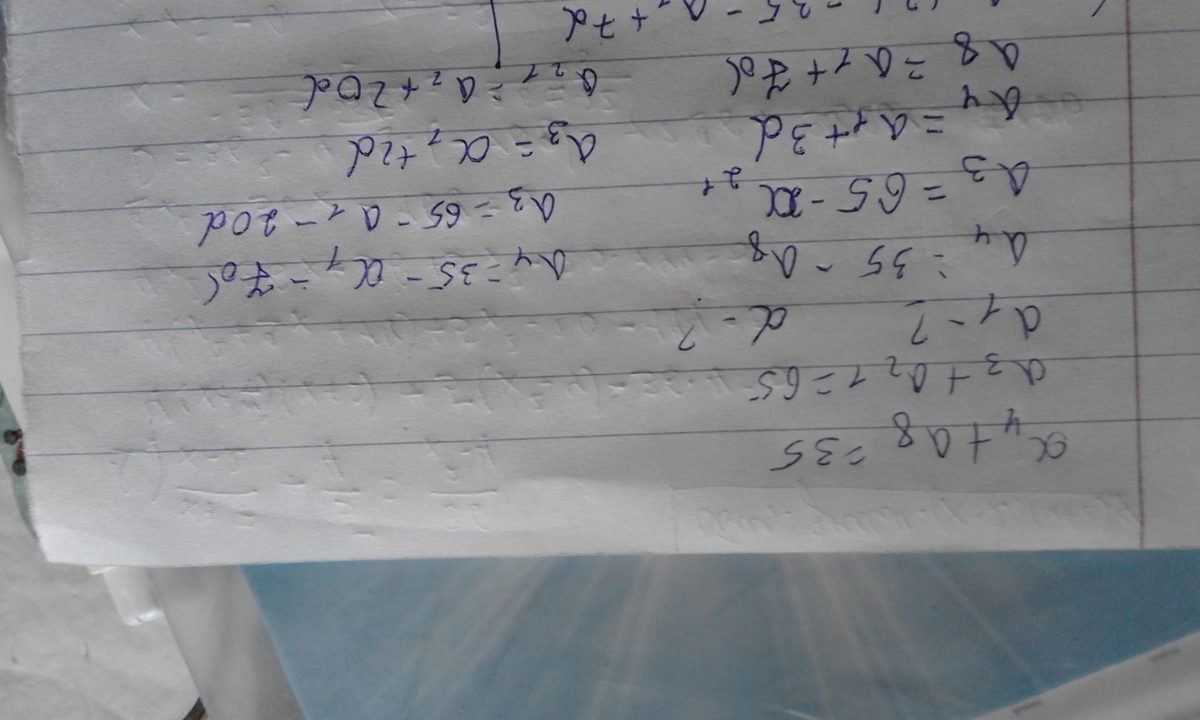 a4 + a8 = 35
a3 + a21 = 65
a1 - ? d - ?
a4 = 35 - a8 a4 = 35 - a1 - 7d
a3 = 65 - a21 a3 = 65 - a1 - 20d
a4 = a1 + 3d a3 = a1 + 2d
a8 = a1 + 7d a21 = a1 + 20d
= 35 - a1 + 7d